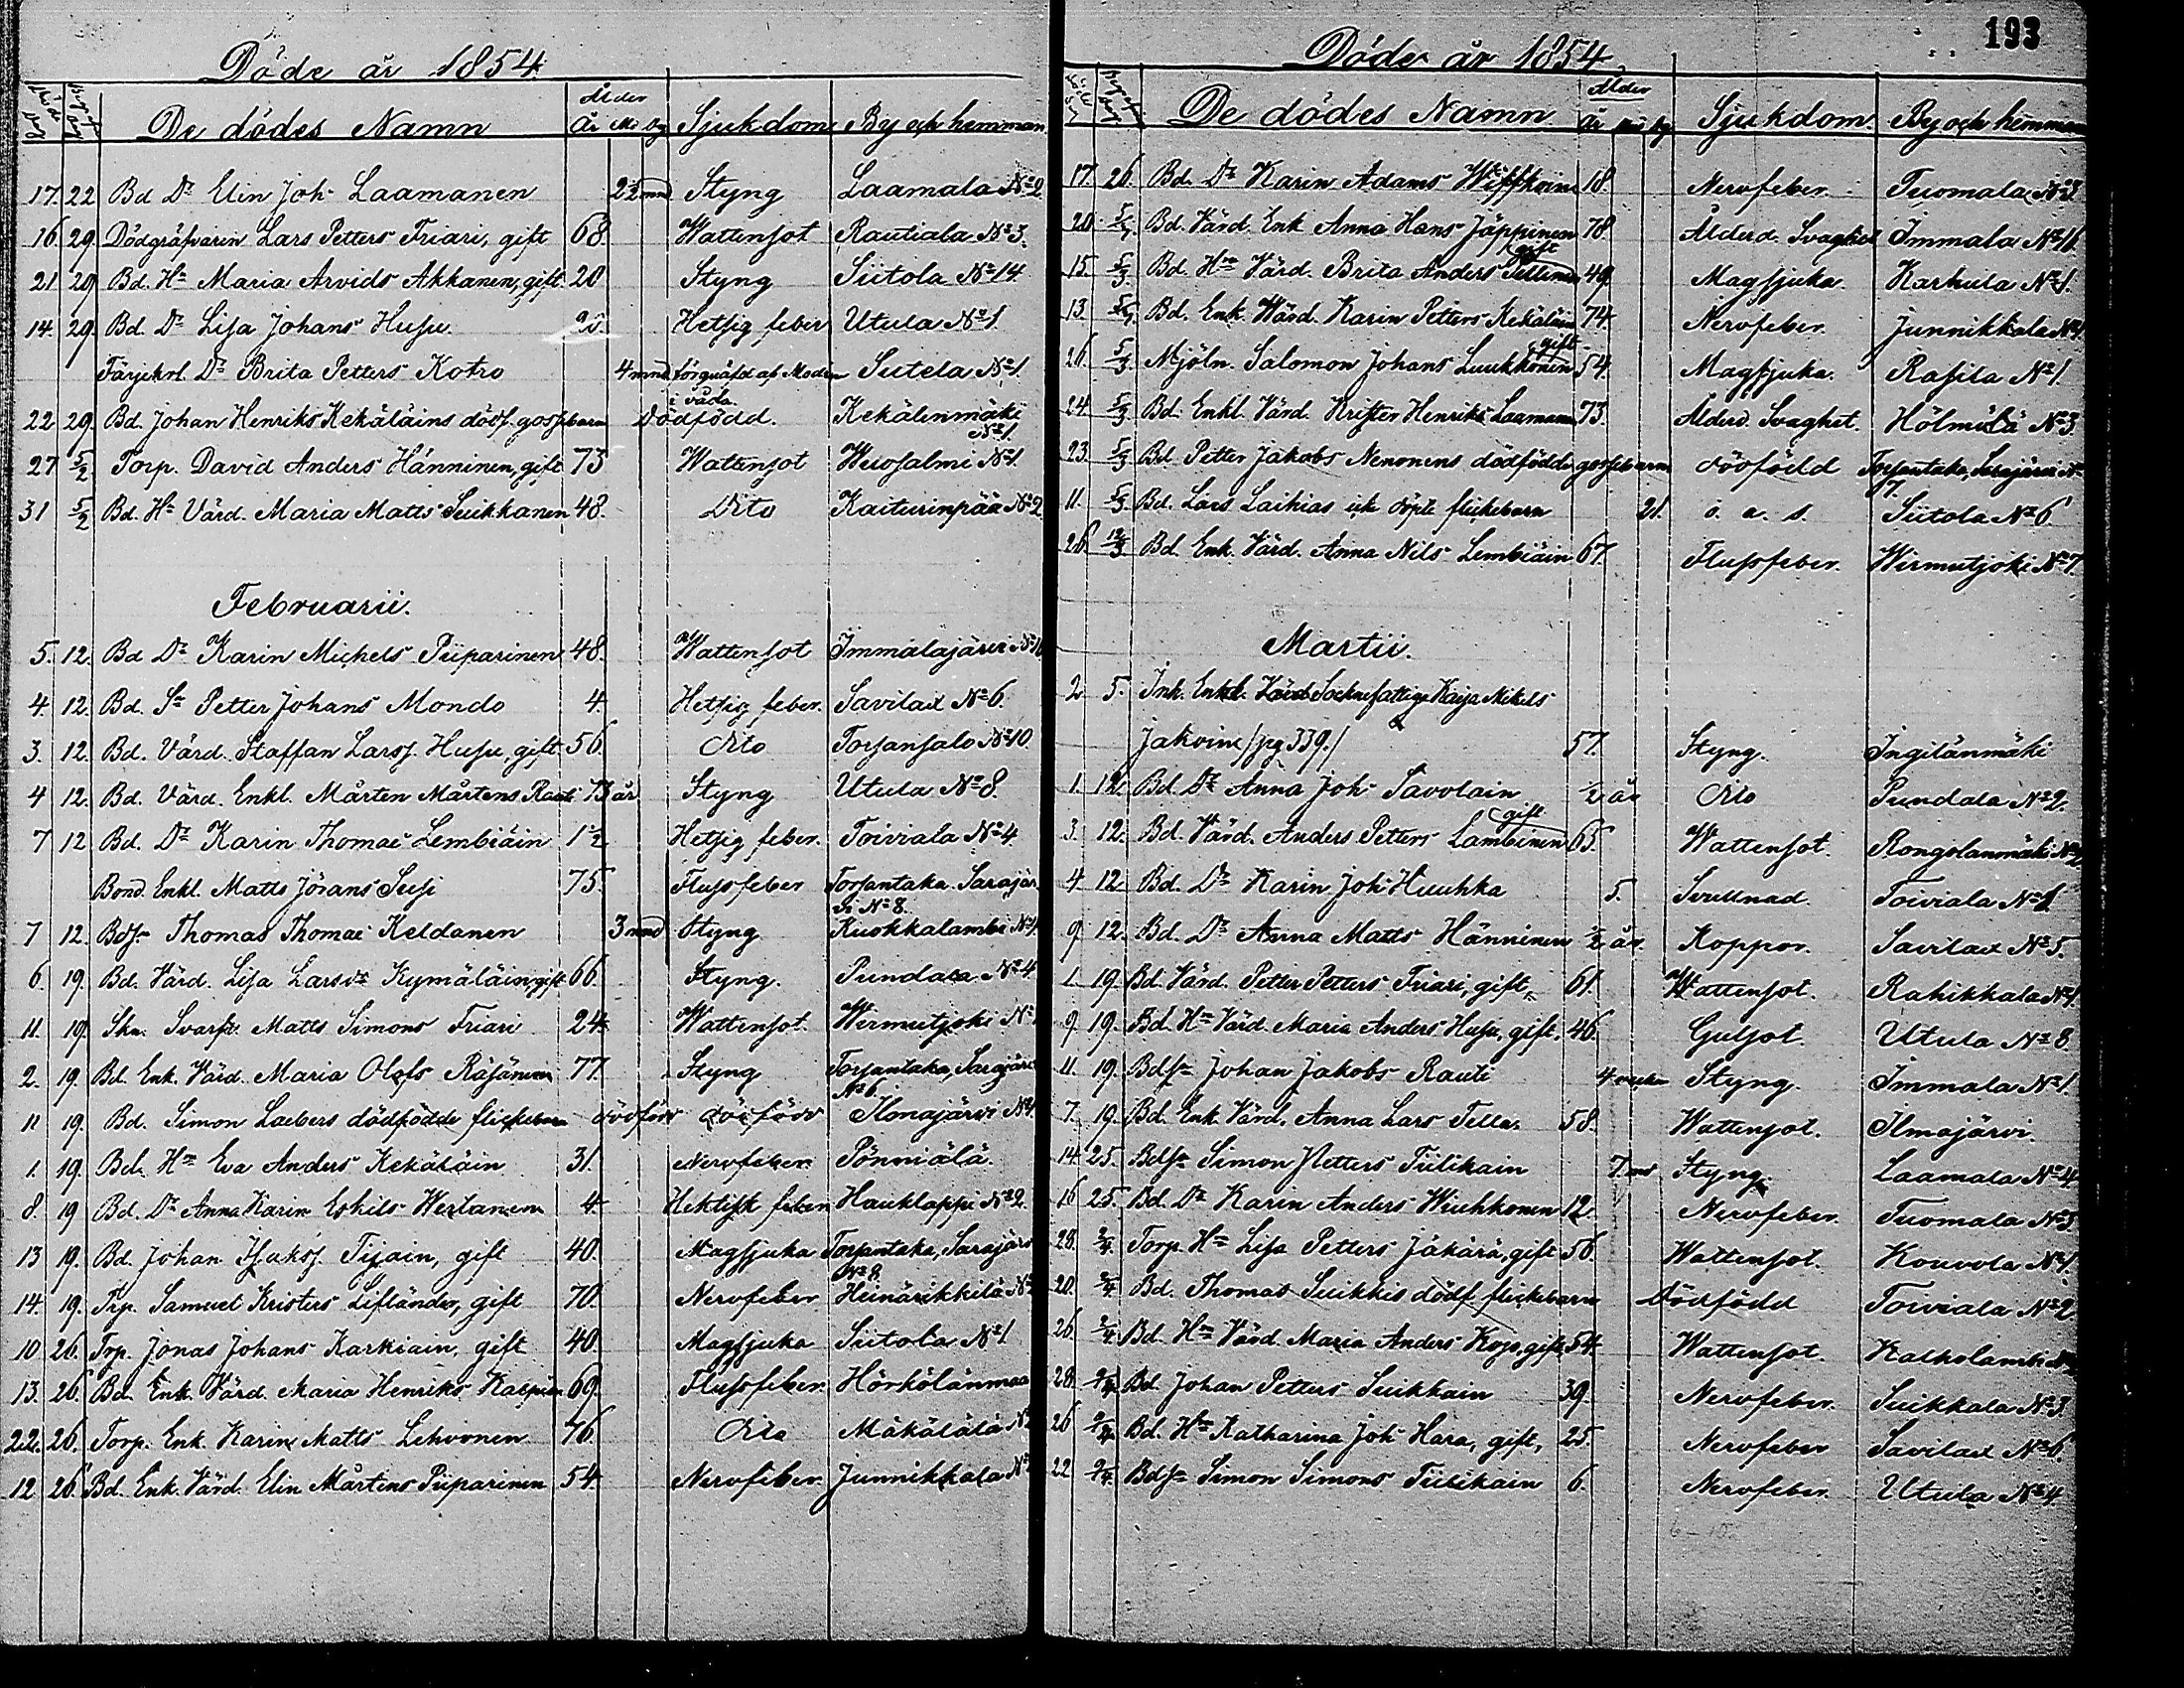 Döde år 1854
Död dag Begraf dag De dödes Namn Ålder År Må Dg Sjukdom By och hemman
17. 22 Bd Dr Elin Joh. Laamanen 2½ mnd Styng Laamala No 2
16. 29. Dödgräfvarin Lars Petters Friari, gift 68. Wattensot Rautiala No 3.
21 29 Bd. Hu Maria Arvids Akkanen, gift. 20 Styng Siitola No 14.
14. 29. Bd. Dr Lisa Johans Husu 20. Hetsig feber Utula No 1.
Färjekrl. Dr Brita Petters Kotro 4 mnd förqväfd af Modren Siitola No 1.
i våda.
22 29. Bd. Johan Henriks Kekäläins dödf. gossebarn Dödfödd. Kekälenmäki
No 1.
27 5/2 Torp. David Anders Hänninen, gift 73 Wattensot Wuosalmi No 1.
31 5/2 Bd. Hu Värd. Maria Matts Suikkanen 48. Dito Kaiturinpää No 2
Februarii.
5. 12. Bd Dr Karin Michels Piiparinen 48. Wattensot Immalajärvi No
4. 12. Bd. Sn Petter Johans Mondo 4. Hetsig feber. Savilax No 6.
3. 12. Bd. Värd. Staffan Larss. Husu, gift 56. Dito Torsansalo No 10.
4 12. Bd. Värd. Enkl. Mårten Mårtens Rauti 73 år Styng Utula No 8.
7 12 Bd. Dr Karin Thomae Lembiäin 1½ Hetsig feber. Toiviala No 4.
Bond. Enkl. Matts Jörans Susi 75. Flussfeber Torsantaka. Sarajär
vi No 8.
7 12. Bds. Thomas Thomae Keldanen 3 mnd Styng Ruokkalambi No 1.
6. 19. Bd. Värd. Lisa Larsdr Kymäläin, gift 66. Styng. Pundala No 4
11. 19. Skn. Svarfv. Matts Simons Friari 24. Wattensot. Wirmutjoki No
2. 19. Bd. Enk. Värd. Maria Olofs Räsänen 77. Styng Torsantaka, Sarajärvi
No 6.
11 19. Bd. Simon Laebers dödfödde flickebarn dödföd dödföd Ilmajärvi No 4.
1. 19. Bd. Hu Eva Anders Kekäläin 31. Nervfeber Pönniälä.
8. 19 Bd. Dr Anna Karin Eskils Wertanen 4. Hektisk feber Hauklappi No 2.
13 19. Bd. Johan Isaks. Tijain, gift 40. Magsjuka Torsantaka, Sarajärvi
No 8.
14. 19. Trp. Samuel Kristers Lifländer, gift 70. Nervfeber Heinärikkilä No
10 26. Trp. Jonas Johans Karkiain, gift 40. Magsjuka Siitola No 1
13. 26. Bd. Enk. Värd. Maria Henriks 69. Flussfeber. Hörkölänmaa
22. 26. Torp. Enk. Karin Matts Lehvonen 76. Dito Mäkälälä No
12 26 Bd. Enk. Värd. Elin Mårtens Piiparinen 54. Nervfeber. Junnikkala No
193
Döde år 1854.
Död dag Begraf dag De dödes Namn Ålder År Må Dg Sjukdom. By och hemman
17. 26. Bd. Dr Karin Adams 18. Nervfeber. Tuomala No 3.
20 5/3 Bd. Värd. Enk Anna Hans Jäppinen 78. Ålderd. Svaghet Immala No 11.
gift
15. 5/3. Bd. Hu Värd. Brita Anders Pellinen 49. Magsjuka Karhula No 1.
13. 5/3. Bd. Enk. Wärd. Karin Petters Kekäläin 74. Nervfeber. Junnikkala No 4.
gift
26. 5/3 Mjöln. Salomon Johans Luukkonen 54. Magsjuka. Rasila No 1.
24. 5/3 Bd. Enkl. Värd. Krister Henriks Laamanen 73. Ålderd. Svaghet. Hölmälä No 3
23. 5/3 Bd Petter Jakobs Nenonens dödfödde gossebarn dödfödd Torsantaka, Sarajärvi No
7.
11. 5/3 Bd. Lars Laihias icke döpte flickebarn 21. o. a. s. Siitola No 6.
26. 12/3 Bd. Enk. Värd. Anna Nils Lembiäin 67. Flussfeber. Wirmutjoki No 7.
Martii.
2. 5. Ink. Enkl. Värd Socknefattige Kaija Mikels
Jakoine /pg 339./ 57. Styng. Ingilänmäki
1. 12. Bd. Dr Anna Joh. Savolain ½ år Dito Pundala No 2.
gift
3. 12. Bd. Värd. Anders Petters Lambinen 65. Wattensot. Rongolanmäki No
4. 12 Bd. Dr Karin Joh. Huuhka 5. Svullnad. Toiviala No 1
9. 12. Bd. Dr Anna Matts Hänninen ½ år. Koppor. Savilax No 5.
1. 19. Bd. Värd. Petter Petters Friari, gift, 61. Wattensot. Rahikkala No 1.
9. 19. Bd. Hu Värd. Maria Anders Husu, gift. 46. Gulsot. Utula No 8.
11. 19. Bdsn Johan Jakobs Rauti 4 veckor Styng. Immala No 1.
7. 19. Bd. Enk. Värd. Anna Lars Tella. 58. Wattensot. Ilmajärvi.
14. 25. Bdsn Simon Petters Tiilikain 7. md Styng. Laamala No 4
16 25. Bd. Dr Karin Anders Wiuhkonen 12. Nervfeber. Tuomala No 3
28. 2/4. Torp. Hu Lisa Petters Jäkärä, gift 56. Wattensot. Kouvola No 1.
20. 2/4 Bd. Thomas Suikkis dödf. flickebarn Dödfödd Toiviala No 2
26. 2/4. Bd. Hu Värd. Maria Anders Kojo, gift 54. Wattensot. Kalkolambi No
28. 2/4. Bd Johan Petters Suikkain 39. Nervfeber. Suikkala No 3.
26 2/4. Bd. Hu Katharina Joh. Hara, gift, 25. Nervfeber Savilax No 6.
22 2/4. Bdsn Simon Simons Tiilikain 6. Nervfeber. Utula No 4